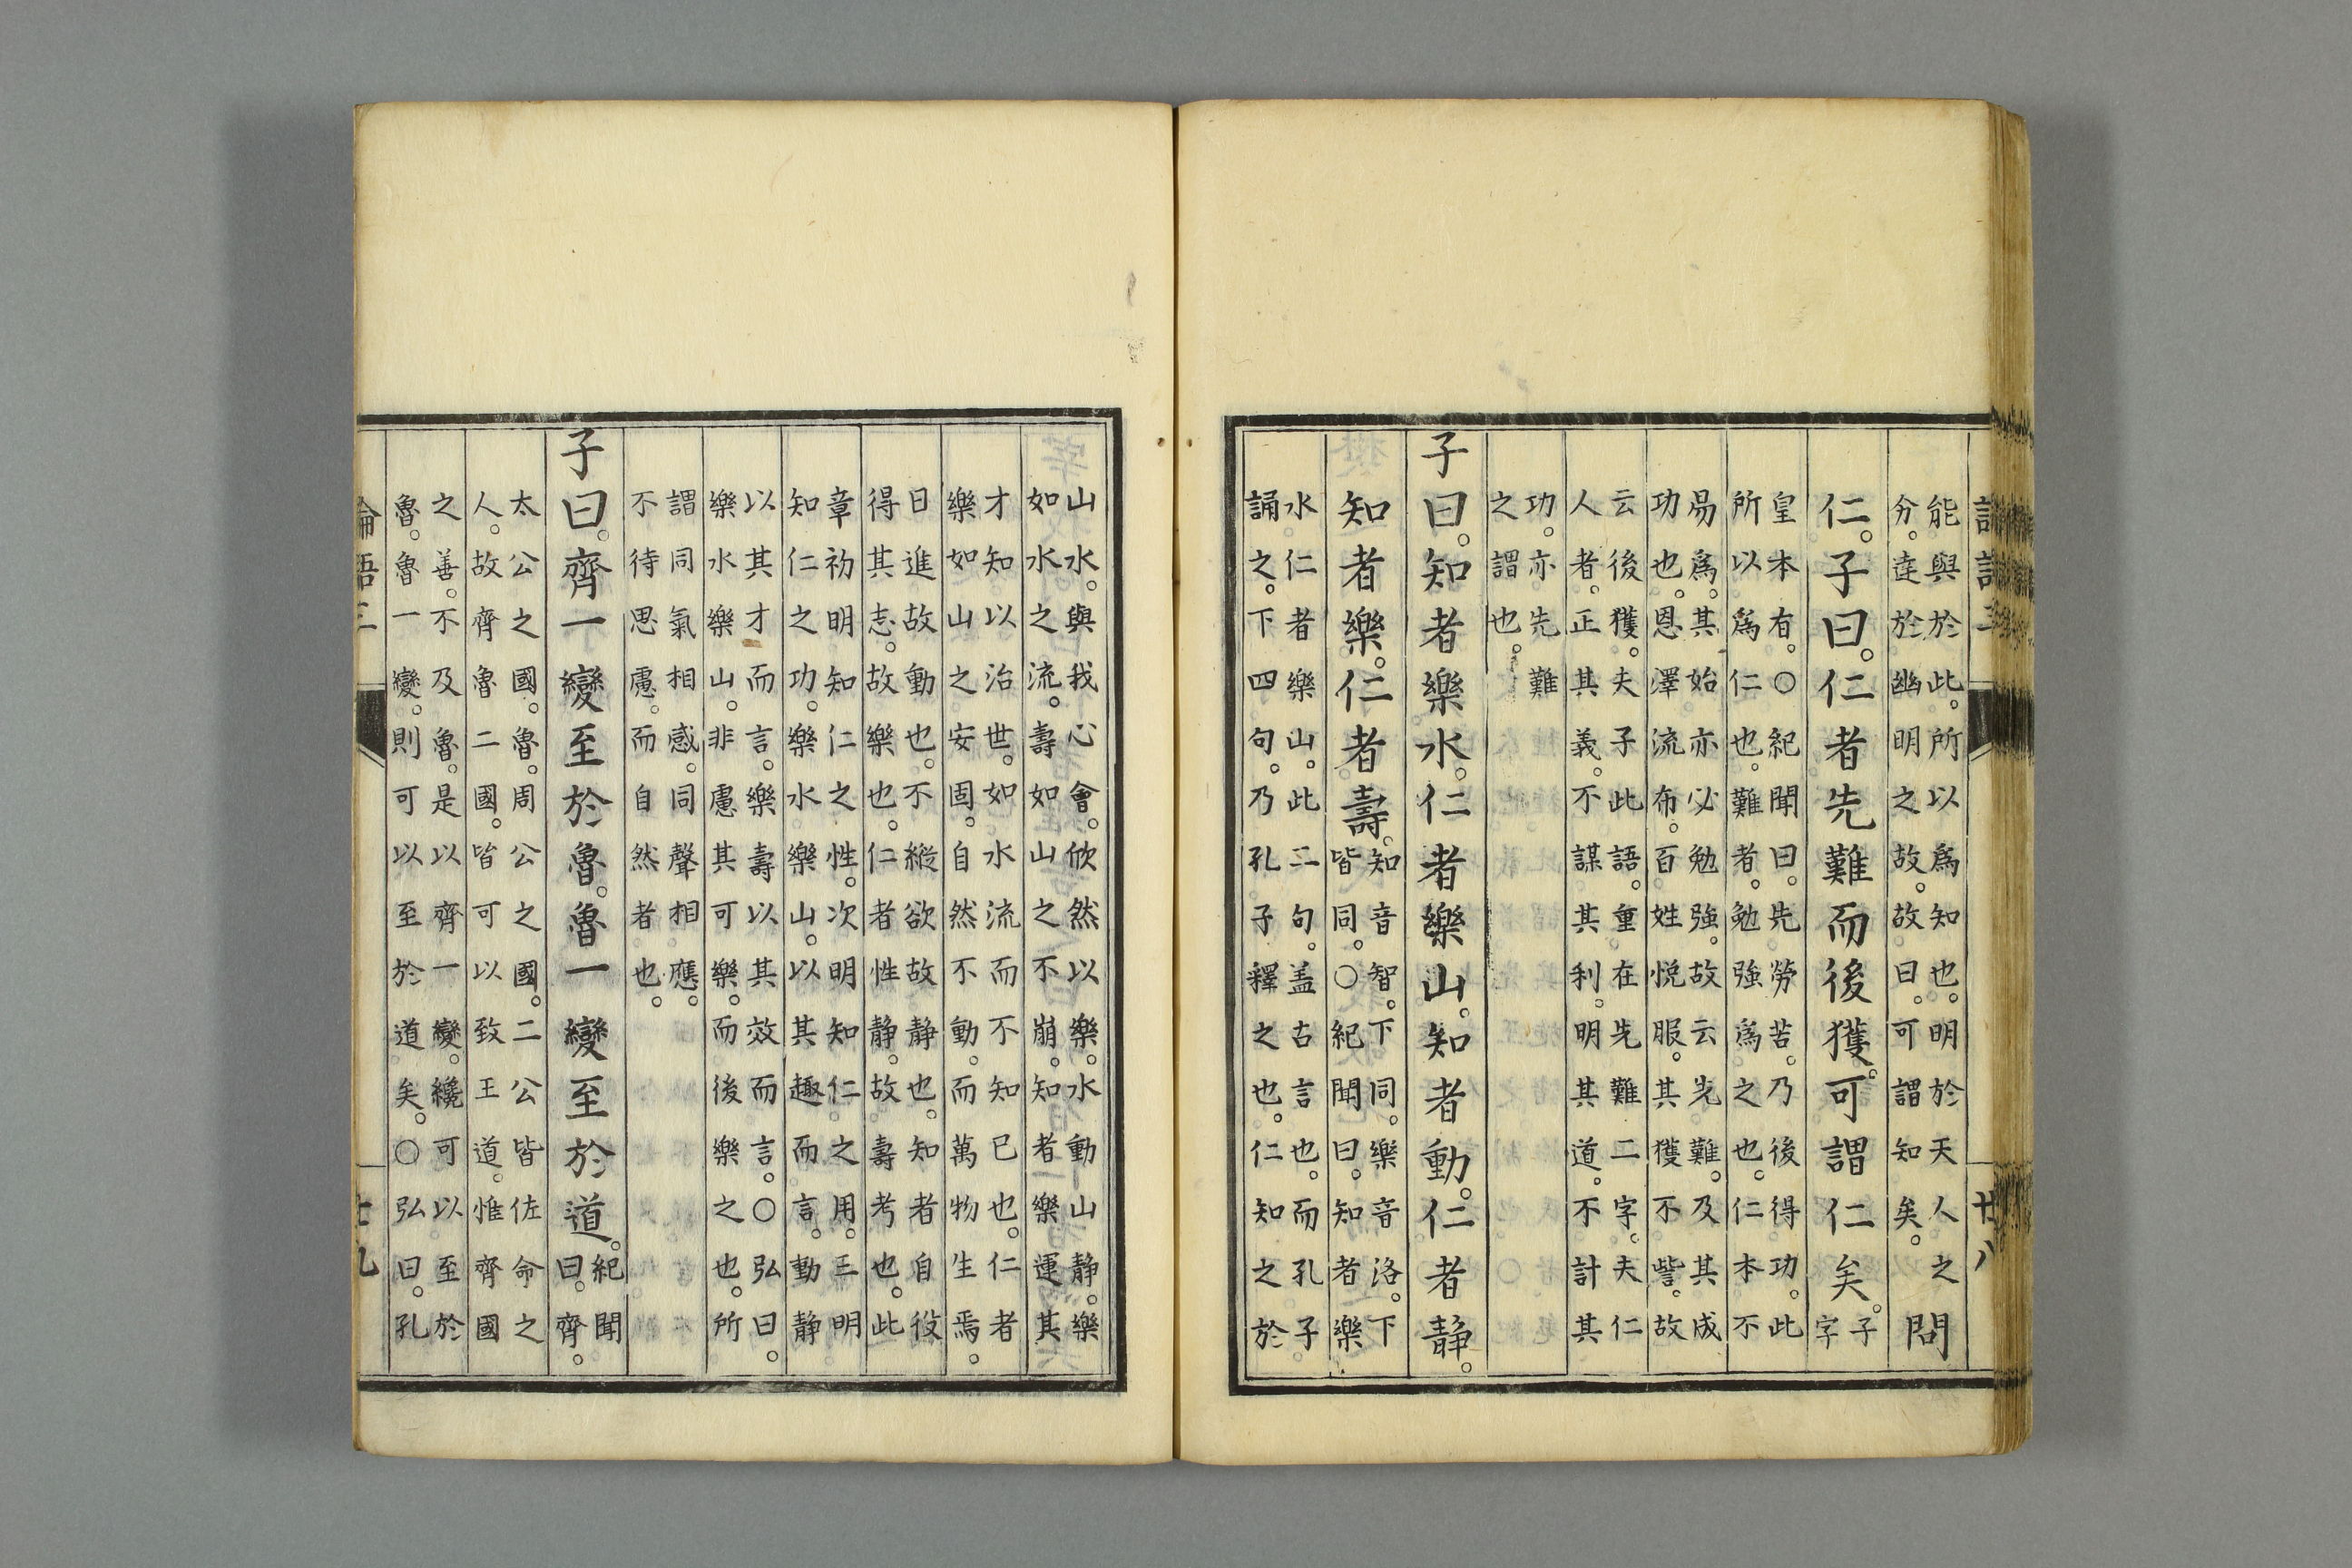 能與於此。所以爲知也。明於天人之
分。達於幽明之故。故曰。可謂知矣。
問
仁。子曰。仁者先難而後獲。可謂仁矣。
子
字
皇本有。〇紀聞曰。先勞苦。乃後得功。此
所以爲仁也。難者。勉強爲之也。仁本不
易爲。其始亦必勉強。故云先難。及其成
功也。恩澤流布。百姓悦服。其獲不訾。故
云後獲。夫子此語。重在先難二字。夫仁
人者。正其義。不謀其利。明其道。不計其
功。亦先難
之謂也。
子曰。知者樂水。仁者樂山。知者動。仁者靜。
知者樂。仁者壽。
知音智。下同。樂音洛。下
皆同。〇紀聞曰。知者樂
水仁者樂山。此二句。盖古言也。而孔子
誦之。下四句。乃孔子釋之也。仁知之於
山水。與我心會。欣然以樂。水動山静。樂
如水之流。壽如山之不崩。知者樂運其
才知以治世。如水流而不知已也。仁者
樂如山之安固。自然不動。而萬物生焉。
日進故動也。不縱欲故静也。知者自役
得其志。故樂也。仁者性静。故壽考也。此
章初明知仁之性。次明知仁之用。三明
知仁之功。樂水樂山。以其趣而言。動静
以其才而言。樂壽以其效而言。〇弘曰。
樂水樂山。非慮其可樂。而後樂之也。所
謂同氣相感。同聲相應。
不待思慮。而自然者也。
子曰。齊一變至於魯。魯一變至於道。
紀聞
曰。齊。
太公之國。魯。周公之國。二公皆佐命之
人。故齊魯二國。皆可以致王道。惟齊國
之善。不及魯。是以齊一變。纔可以至於
魯。魯一變。則可以至於道矣。〇弘曰。孔